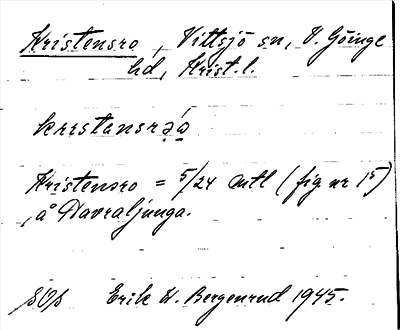 Kristensro, Vittsjö sn, V. Göinge
hd, Krist. l.
Kristensro = 5/24 mtl (fig nr 15)
, å Havraljunga.
Erik W. Bergenrud 1945.